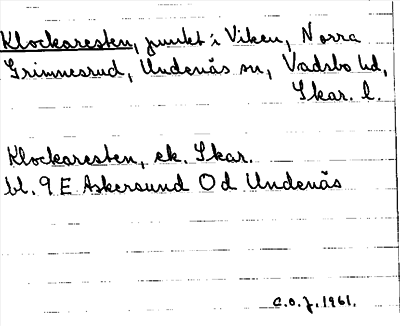 Klockaresten, punkt i Viken, Norra
Grimnesrud, Undenäs sn, Vadsbo hd,
Skar. l.
Klockaresten, ek. Skar.
bl. 9 E Askersund Od Undenäs
C.O.J. 1961.